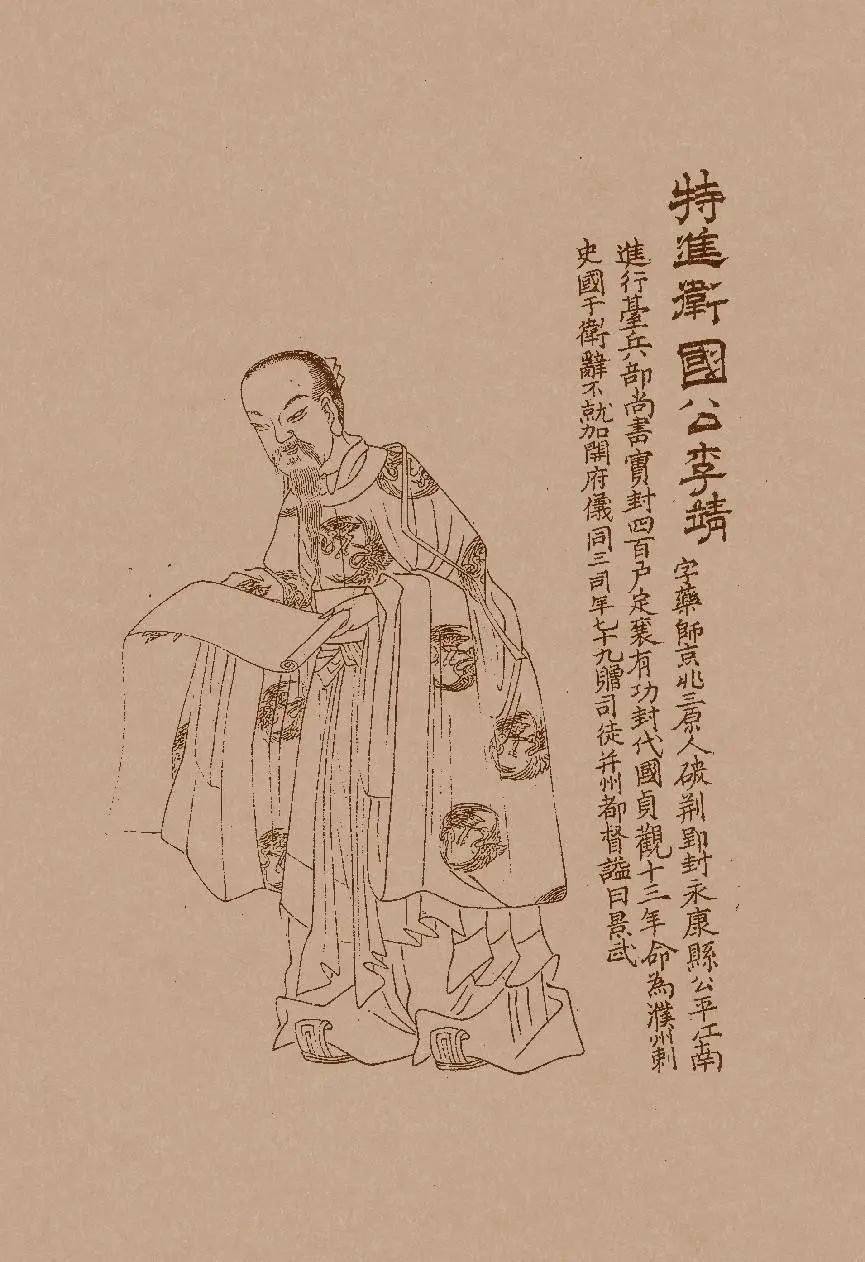 特進衛國公李靖
字藥師京兆三原人破荆郢封永康縣公平江南
進行臺兵部尚書實封四百户定襄有功封代國貞觀十三年命為濮州刺
史國于衛辭不就加開府儀同三司年七十九贈司徒并州都督諡曰景武